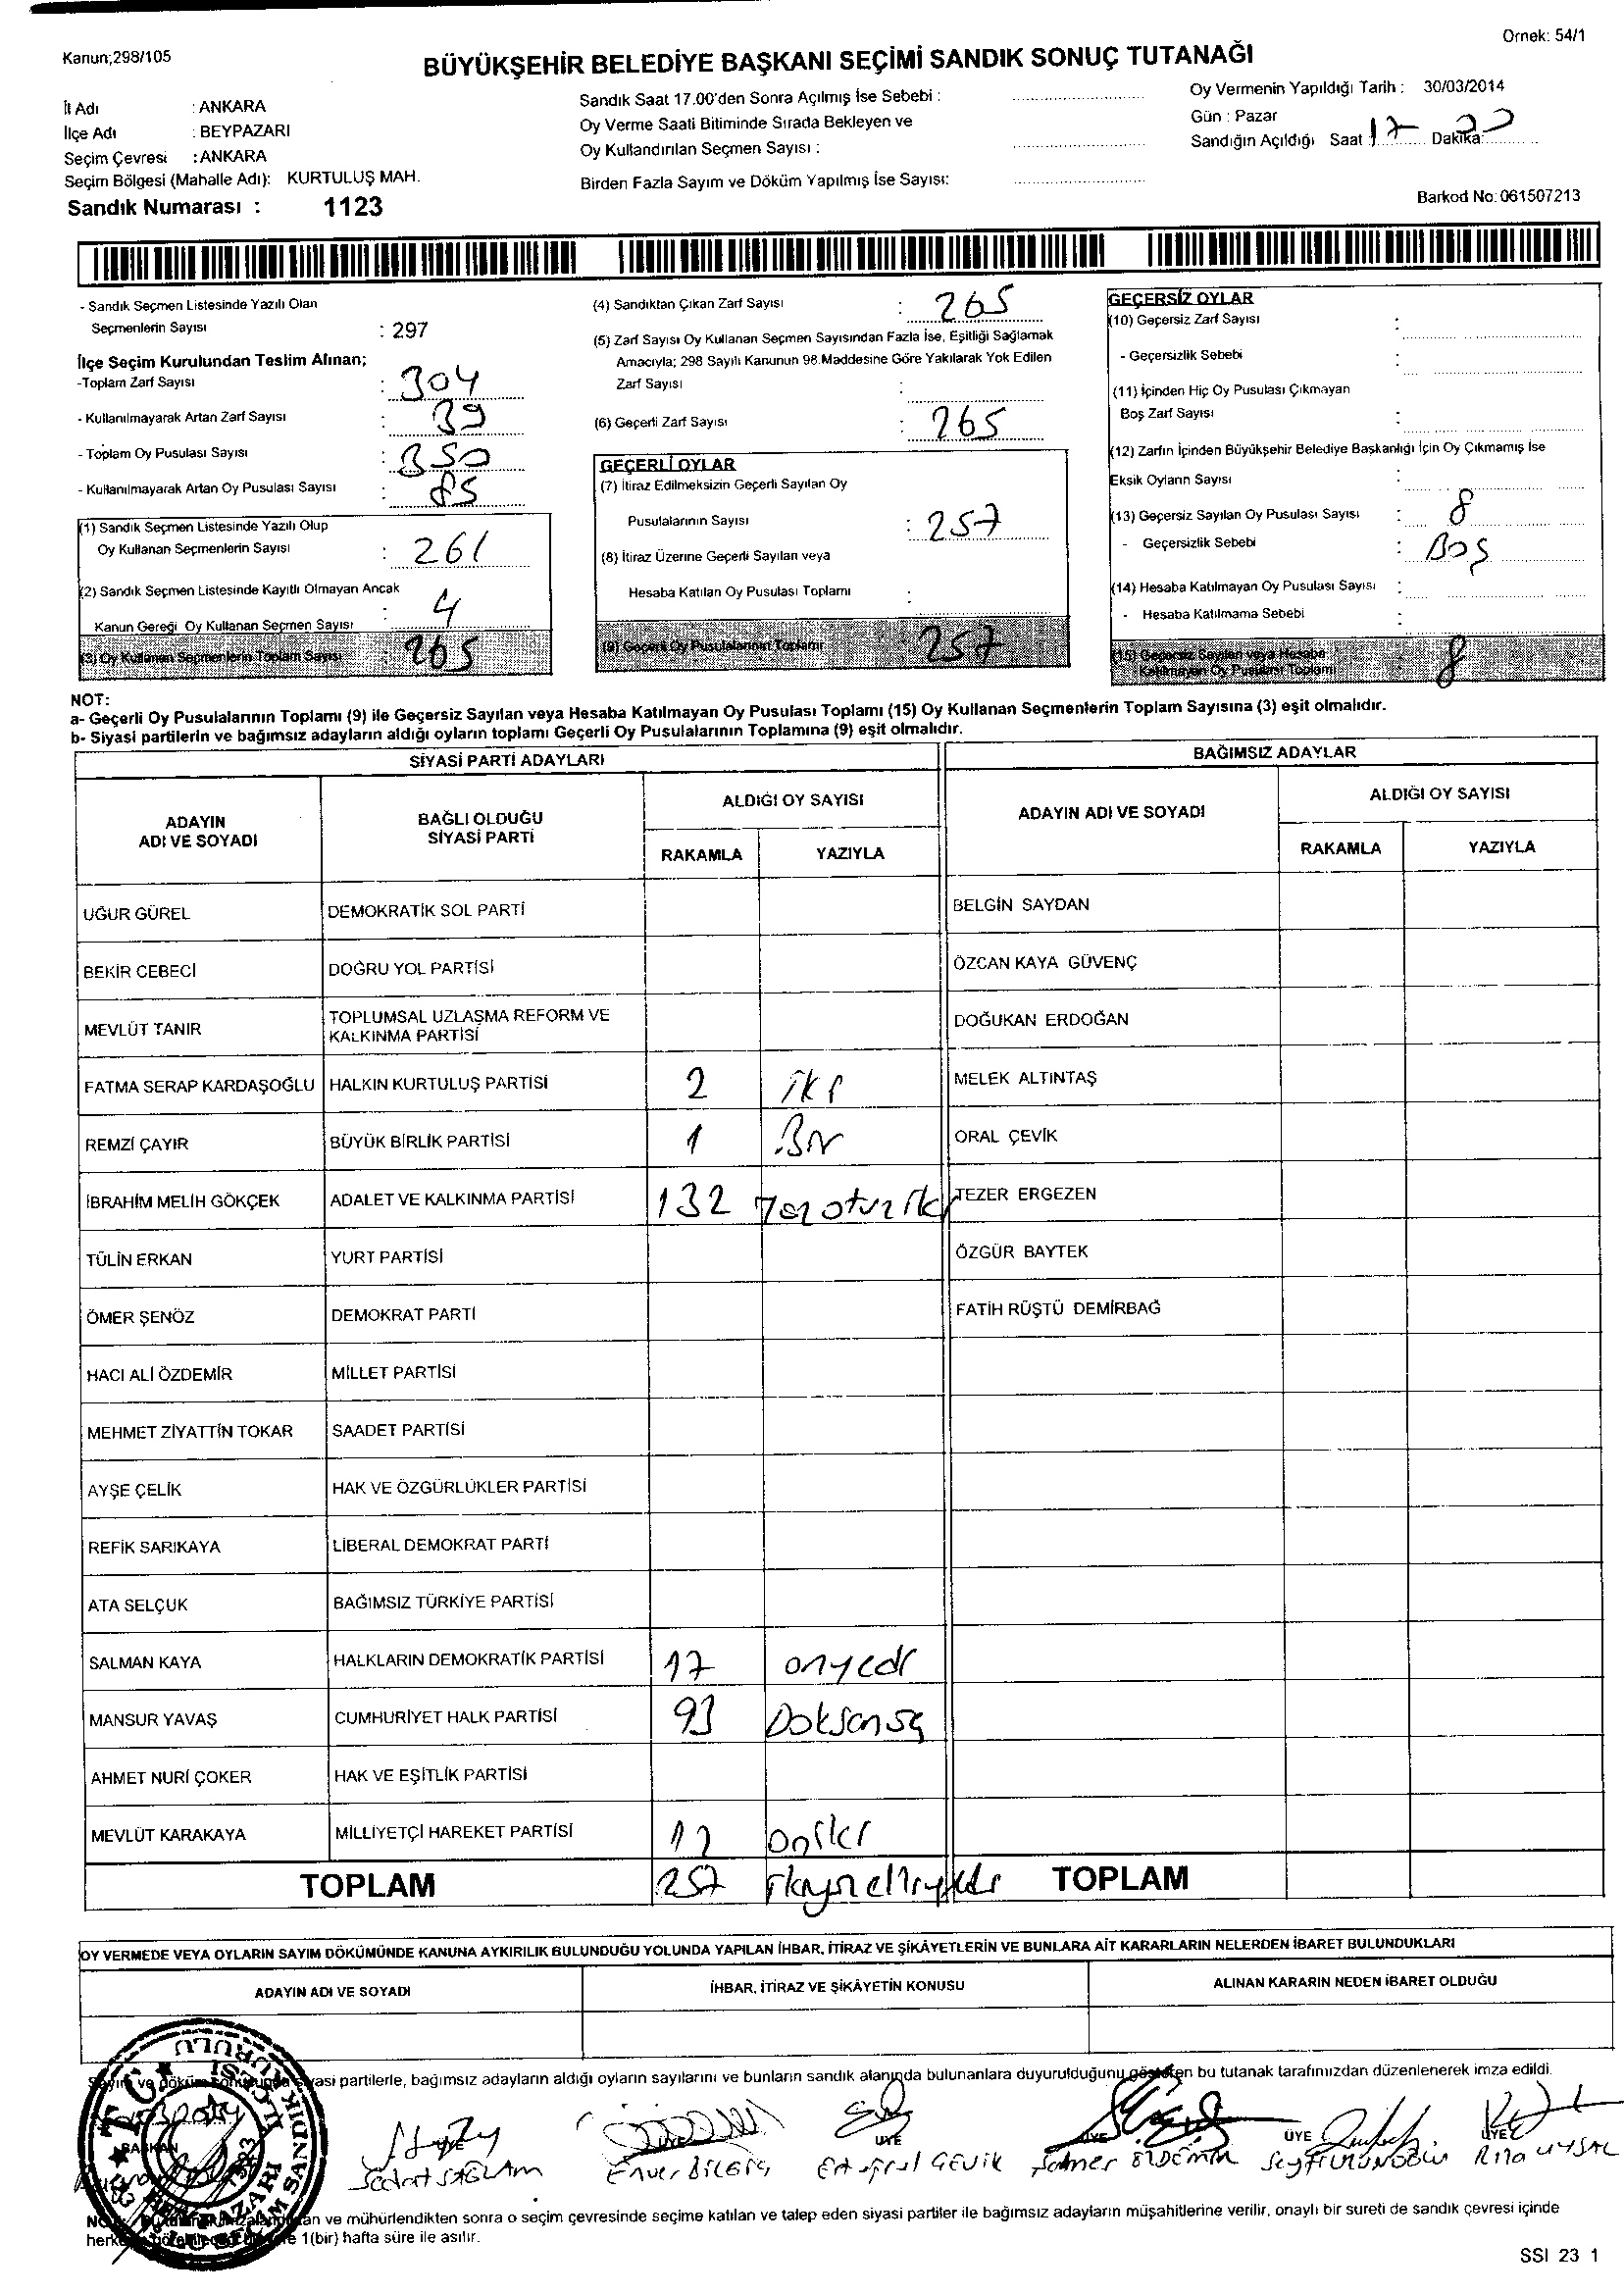 Kanun;298/105
Ornek: 54/1
BÜYÜKŞEHİR BELEDİYE BAŞKANI SEÇİMİ SANDIK SONUÇ TUTANAĞI
İl Adı : ANKARA
İlçe Adı : BEYPAZARI
Seçim Çevresi : ANKARA
Seçim Bölgesi (Mahalle Adı): KURTULUŞ MAH.
Sandık Numarası : 1123
Sandık Saat 17.00'den Sonra Açılmış İse Sebebi :
Oy Verme Saati Bitiminde Sırada Bekleyen ve
Oy Kullandırılan Seçmen Sayısı :
Birden Fazla Sayım ve Döküm Yapılmış İse Sayısı:
Oy Vermenin Yapıldığı Tarih : 30/03/2014
Gün : Pazar
Sandığın Açıldığı Saat : 17 Dakika:
Barkod No: 061507213
- Sandık Seçmen Listesinde Yazılı Olan
Seçmenlerin Sayısı : 297
İlçe Seçim Kurulundan Teslim Alınan;
-Toplam Zarf Sayısı : 304
- Kullanılmayarak Artan Zarf Sayısı : 39
- Toplam Oy Pusulası Sayısı : 350
- Kullanılmayarak Artan Oy Pusulası Sayısı : 85
(1) Sandık Seçmen Listesinde Yazılı Olup
Oy Kullanan Seçmenlerin Sayısı : 261
(2) Sandık Seçmen Listesinde Kayıtlı Olmayan Ancak
Kanun Gereği Oy Kullanan Seçmen Sayısı : 4
(3) Oy Kullanan Seçmenlerin Toplam Sayısı : 265
(4) Sandıktan Çıkan Zarf Sayısı : 265
(5) Zarf Sayısı Oy Kullanan Seçmen Sayısından Fazla İse, Eşitliği Sağlamak
Amacıyla; 298 Sayılı Kanunun 98.Maddesine Göre Yakılarak Yok Edilen
Zarf Sayısı :
(6) Geçerli Zarf Sayısı : 265
GEÇERLİ OYLAR
(7) İtiraz Edilmeksizin Geçerli Sayılan Oy
Pusulalarının Sayısı : 257
(8) İtiraz Üzerine Geçerli Sayılan veya
Hesaba Katılan Oy Pusulası Toplamı :
(9) Geçerli Oy Pusulalarının Toplamı : 257
GEÇERSİZ OYLAR
(10) Geçersiz Zarf Sayısı :
- Geçersizlik Sebebi :
(11) İçinden Hiç Oy Pusulası Çıkmayan
Boş Zarf Sayısı :
(12) Zarfın İçinden Büyükşehir Belediye Başkanlığı İçin Oy Çıkmamış İse
Eksik Oyların Sayısı :
(13) Geçersiz Sayılan Oy Pusulası Sayısı : 8
- Geçersizlik Sebebi : Boş
(14) Hesaba Katılmayan Oy Pusulası Sayısı :
- Hesaba Katılmama Sebebi :
(15) Geçersiz Sayılan veya Hesaba
Katılmayan Oy Pusulası Toplamı 8
NOT:
a- Geçerli Oy Pusulalarının Toplamı (9) ile Geçersiz Sayılan veya Hesaba Katılmayan Oy Pusulası Toplamı (15) Oy Kullanan Seçmenlerin Toplam Sayısına (3) eşit olmalıdır.
b- Siyasi partilerin ve bağımsız adayların aldığı oyların toplamı Geçerli Oy Pusulalarının Toplamına (9) eşit olmalıdır.
SİYASİ PARTİ ADAYLARI
BAĞIMSIZ ADAYLAR
ADAYIN ADI VE SOYADI
BAĞLI OLDUĞU SİYASİ PARTİ
ALDIĞI OY SAYISI
RAKAMLA YAZIYLA
ADAYIN ADI VE SOYADI
ALDIĞI OY SAYISI
RAKAMLA YAZIYLA
UĞUR GÜREL DEMOKRATİK SOL PARTİ BELGİN SAYDAN
BEKİR CEBECİ DOĞRU YOL PARTİSİ ÖZCAN KAYA GÜVENÇ
MEVLÜT TANIR TOPLUMSAL UZLAŞMA REFORM VE KALKINMA PARTİSİ DOĞUKAN ERDOĞAN
FATMA SERAP KARDAŞOĞLU HALKIN KURTULUŞ PARTİSİ 2 iki MELEK ALTINTAŞ
REMZİ ÇAYIR BÜYÜK BİRLİK PARTİSİ 1 Bir ORAL ÇEVİK
İBRAHİM MELİH GÖKÇEK ADALET VE KALKINMA PARTİSİ 132 Yüzotuziki TEZER ERGEZEN
TÜLİN ERKAN YURT PARTİSİ ÖZGÜR BAYTEK
ÖMER ŞENÖZ DEMOKRAT PARTİ FATİH RÜŞTÜ DEMİRBAĞ
HACI ALİ ÖZDEMİR MİLLET PARTİSİ
MEHMET ZİYATTİN TOKAR SAADET PARTİSİ
AYŞE ÇELİK HAK VE ÖZGÜRLÜKLER PARTİSİ
REFİK SARIKAYA LİBERAL DEMOKRAT PARTİ
ATA SELÇUK BAĞIMSIZ TÜRKİYE PARTİSİ
SALMAN KAYA HALKLARIN DEMOKRATİK PARTİSİ 17 onyedi
MANSUR YAVAŞ CUMHURİYET HALK PARTİSİ 93 Doksanüç
AHMET NURİ ÇOKER HAK VE EŞİTLİK PARTİSİ
MEVLÜT KARAKAYA MİLLİYETÇİ HAREKET PARTİSİ 12 oniki
TOPLAM 257 ikiyüzelliyedi TOPLAM
OY VERMEDE VEYA OYLARIN SAYIM DÖKÜMÜNDE KANUNA AYKIRILIK BULUNDUĞU YOLUNDA YAPILAN İHBAR, İTİRAZ VE ŞİKÂYETLERİN VE BUNLARA AİT KARARLARIN NELERDEN İBARET BULUNDUKLARI
ADAYIN ADI VE SOYADI İHBAR, İTİRAZ VE ŞİKÂYETİN KONUSU ALINAN KARARIN NEDEN İBARET OLDUĞU
Sayım ve döküm sonucunda siyasi partilerle, bağımsız adayların aldığı oyların sayılarını ve bunların sandık alanında bulunanlara duyurulduğunu gösteren bu tutanak tarafımızdan düzenlenerek imza edildi.
BAŞKAN ÜYE ÜYE ÜYE ÜYE ÜYE ÜYE
Sedat SAĞLAM Enver BİLGİÇ Ertuğrul ÇEVİK ÖZDEMİR Rıza UYSAL
an ve mühürlendikten sonra o seçim çevresinde seçime katılan ve talep eden siyasi partiler ile bağımsız adayların müşahitlerine verilir, onaylı bir sureti de sandık çevresi içinde
1(bir) hafta süre ile asılır.
SSI 23 1